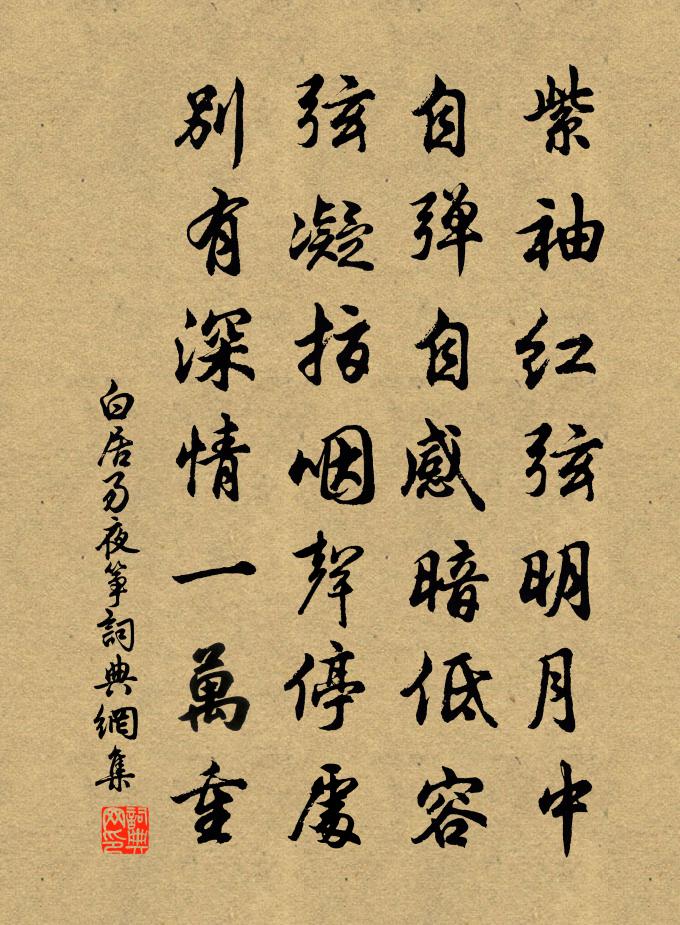 紫袖红弦明月中
自弹自感暗低容
弦凝指咽聲停處
别有深情一萬重
白居易夜筝詞典網集
詞典網印